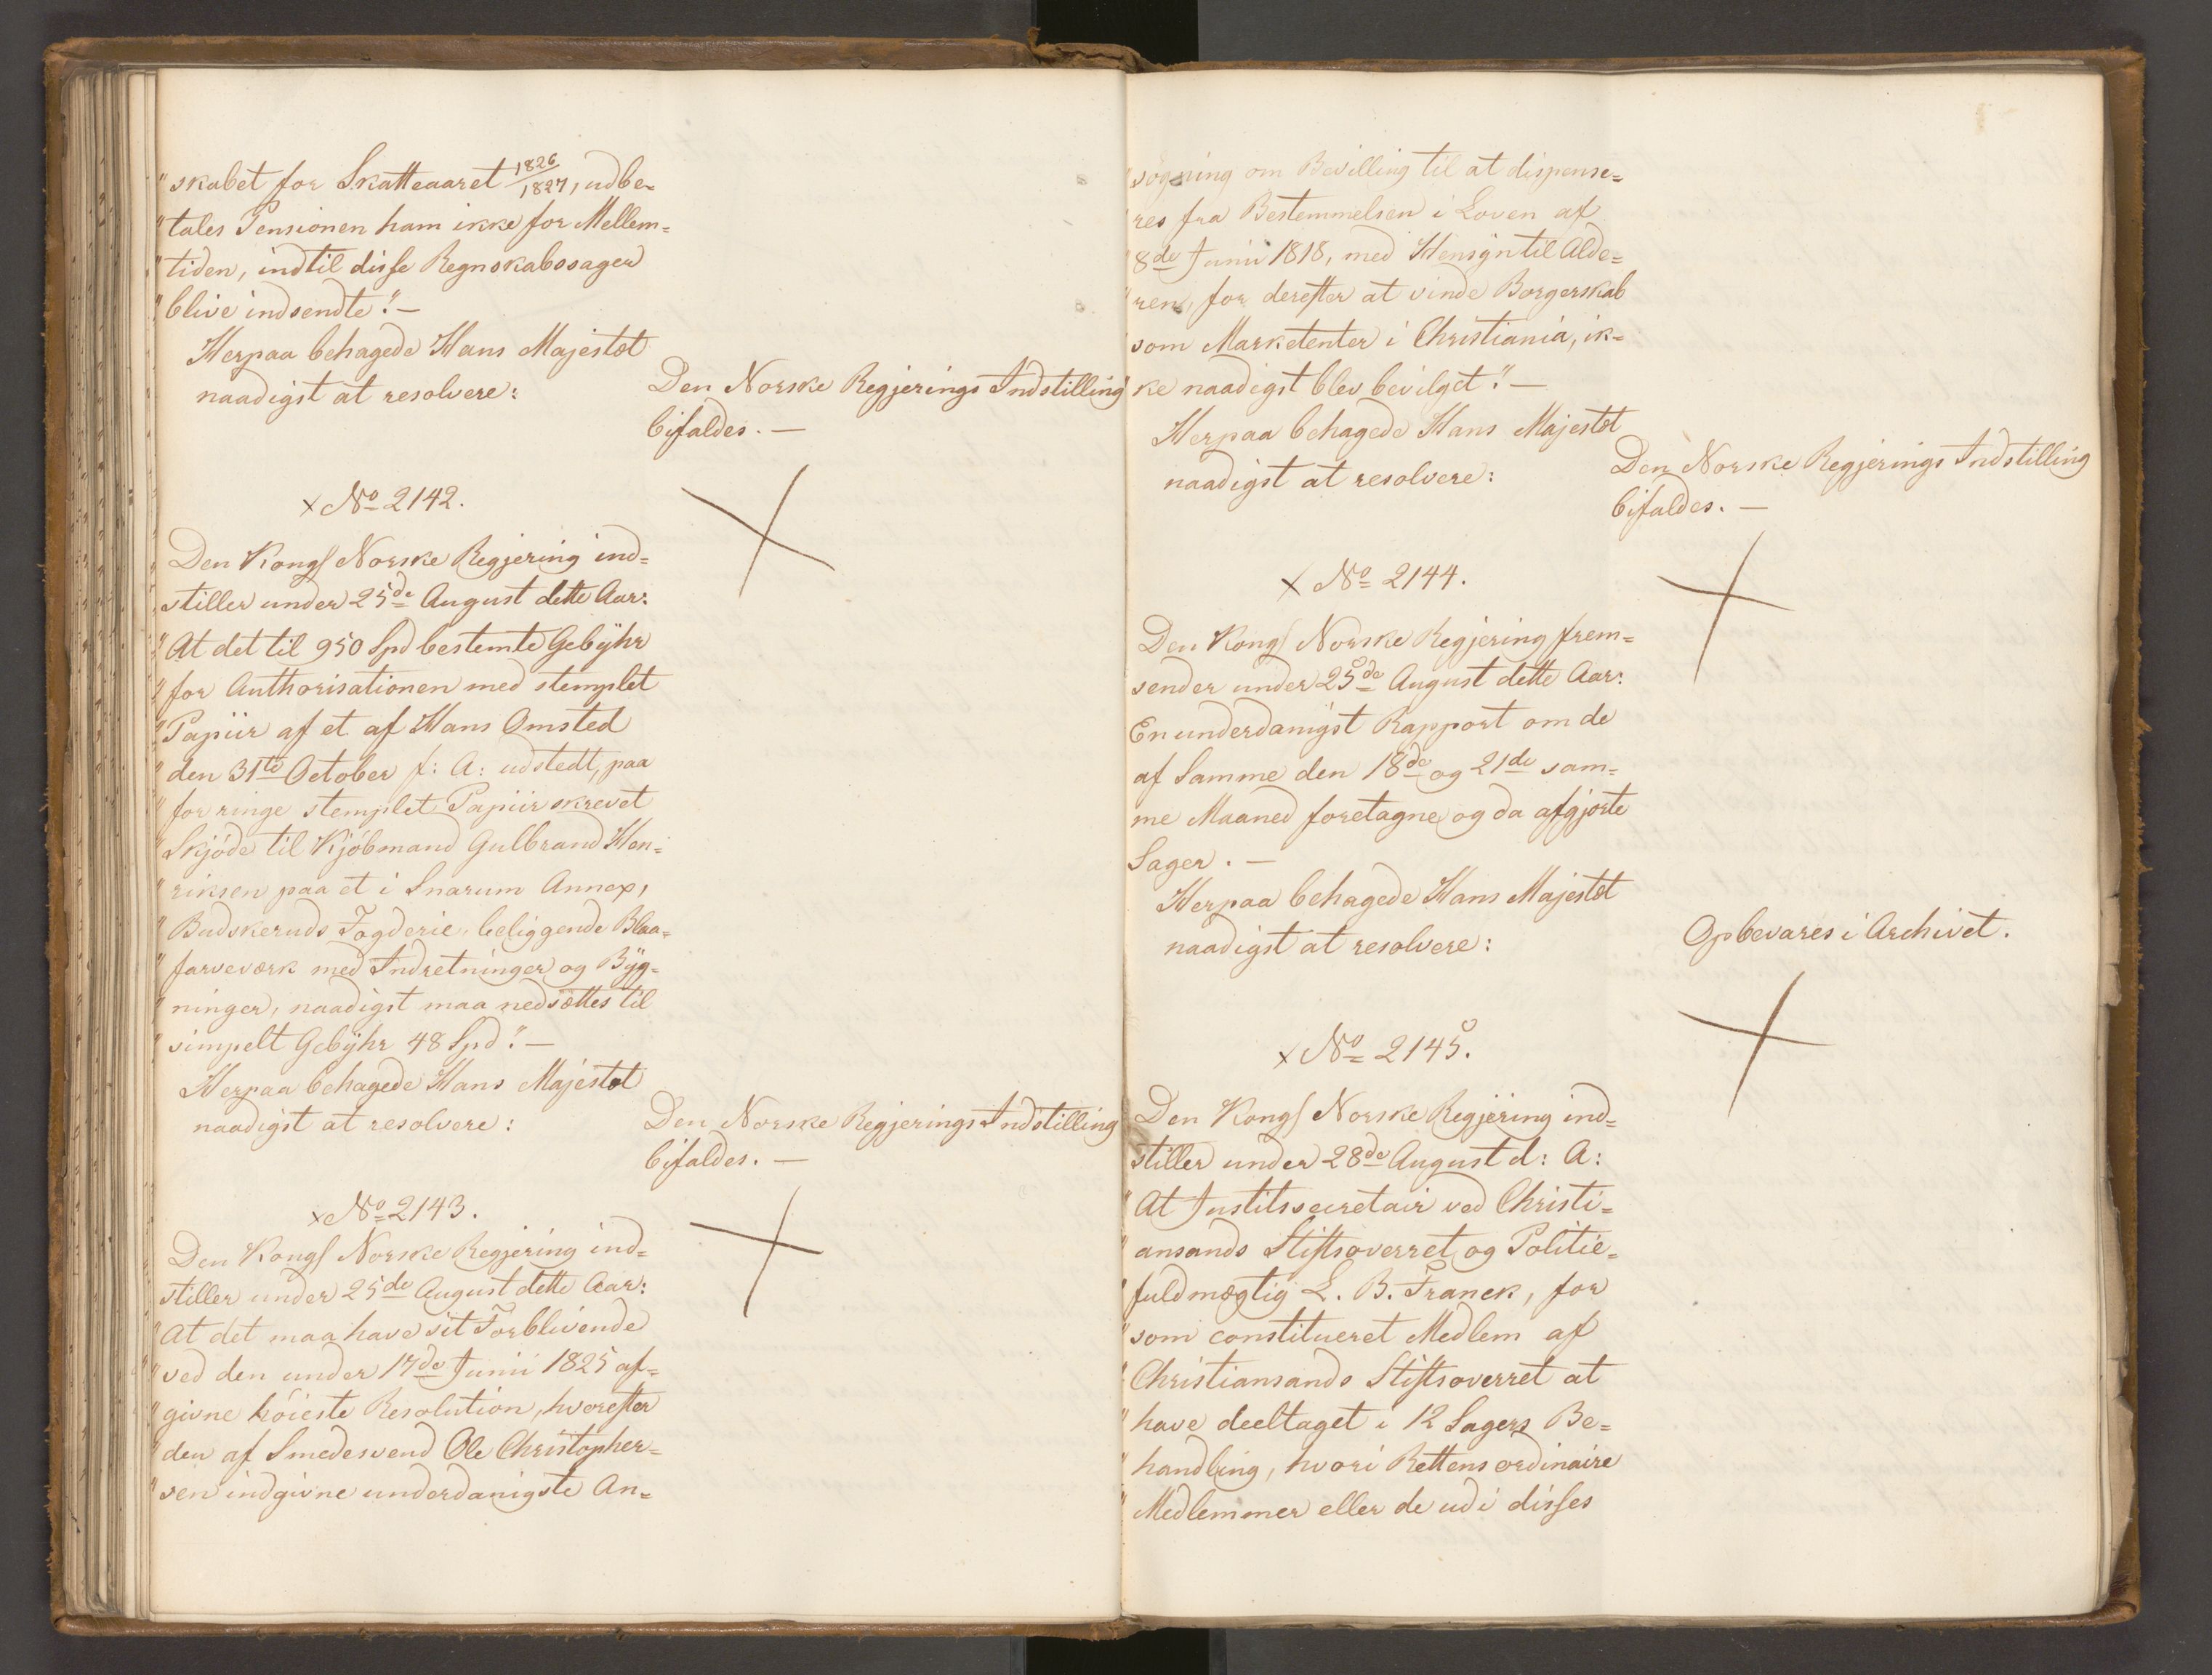 "skabet for Skatteaaret 1826/1827, udbe=
"tales Pensionen ham ikke for Mellem=
"tiden, indtil disse Regnskabssager
"blive indsendte". —
Herpaa behagede Hans Majestæt
naadigst at resolvere:
Den Norske Regjerings Indstilling
bifaldes. —
x No 2142.
Den Kongl Norske Regjering ind=
stiller under 25de August dette Aar:
"At det til 950 Spd bestemte Gebÿhr
"for Authorisationen med stemplet
"Papiir af et af Hans Omsted
"den 31te October f: A: udstedt, paa
"for ringe stemplet Papiir skrevet
"Skjøde til Kjøbmand Gulbrand Hen=
"riksen paa et i Snarum Annex,
"Budskeruds Fogderie, beliggende Blaa=
"farveværk med Indretninger og Bÿg=
"ninger, naadigst maa nedsættes til
"simpelt Gebÿhr 48 Spd". —
Herpaa behagede Hans Majestæt
naadigst at resolvere:
Den Norske Regjerings Indstilling
bifaldes. —
x No 2143.
Den Kongl Norske Regjering ind=
stiller under 25de August dette Aar:
"At det maa have sit Forblivende
"ved den under 17de Junii 1825 af=
"givne høieste Resolution, hvorefter
"den af Smedesvend Ole Christopher=
"sen indgivne underdanigste An=
"søgning om Bevilling til at dispense=
"res fra Bestemmelsen i Loven af
"8de Junii 1818, med Hensÿn til Alde=
"ren, for derefter at vinde Borgerskab
"som Marketenter i Christiania, ik=
"ke naadigst blev bevilget". —
Herpaa behagede Hans Majestæt
naadigst at resolvere:
Den Norske Regjerings Indstilling
bifaldes. —
x No 2144.
Den Kongl Norske Regjering frem=
sender under 25de August dette Aar:
En underdanigst Rapport om de
af Samme den 18de og 21de sam=
me Maaned foretagne og da afgjorte
Sager. —
Herpaa behagede Hans Majestæt
naadigst at resolvere:
Opbevares i Archivet.
x No 2145.
Den Kongl Norske Regjering ind=
stiller under 28de August d: A:
"At Justitssecretair ved Christi=
"ansands Stiftsoverret og Politie=
"fuldmægtig L. B. Franck, for
"som constitueret Medlem af
"Christiansands Stiftsoverret at
"have deeltaget i 12 Sagers Be=
"handling, hvori Rettens ordinaire
"Medlemmer eller de udi disses